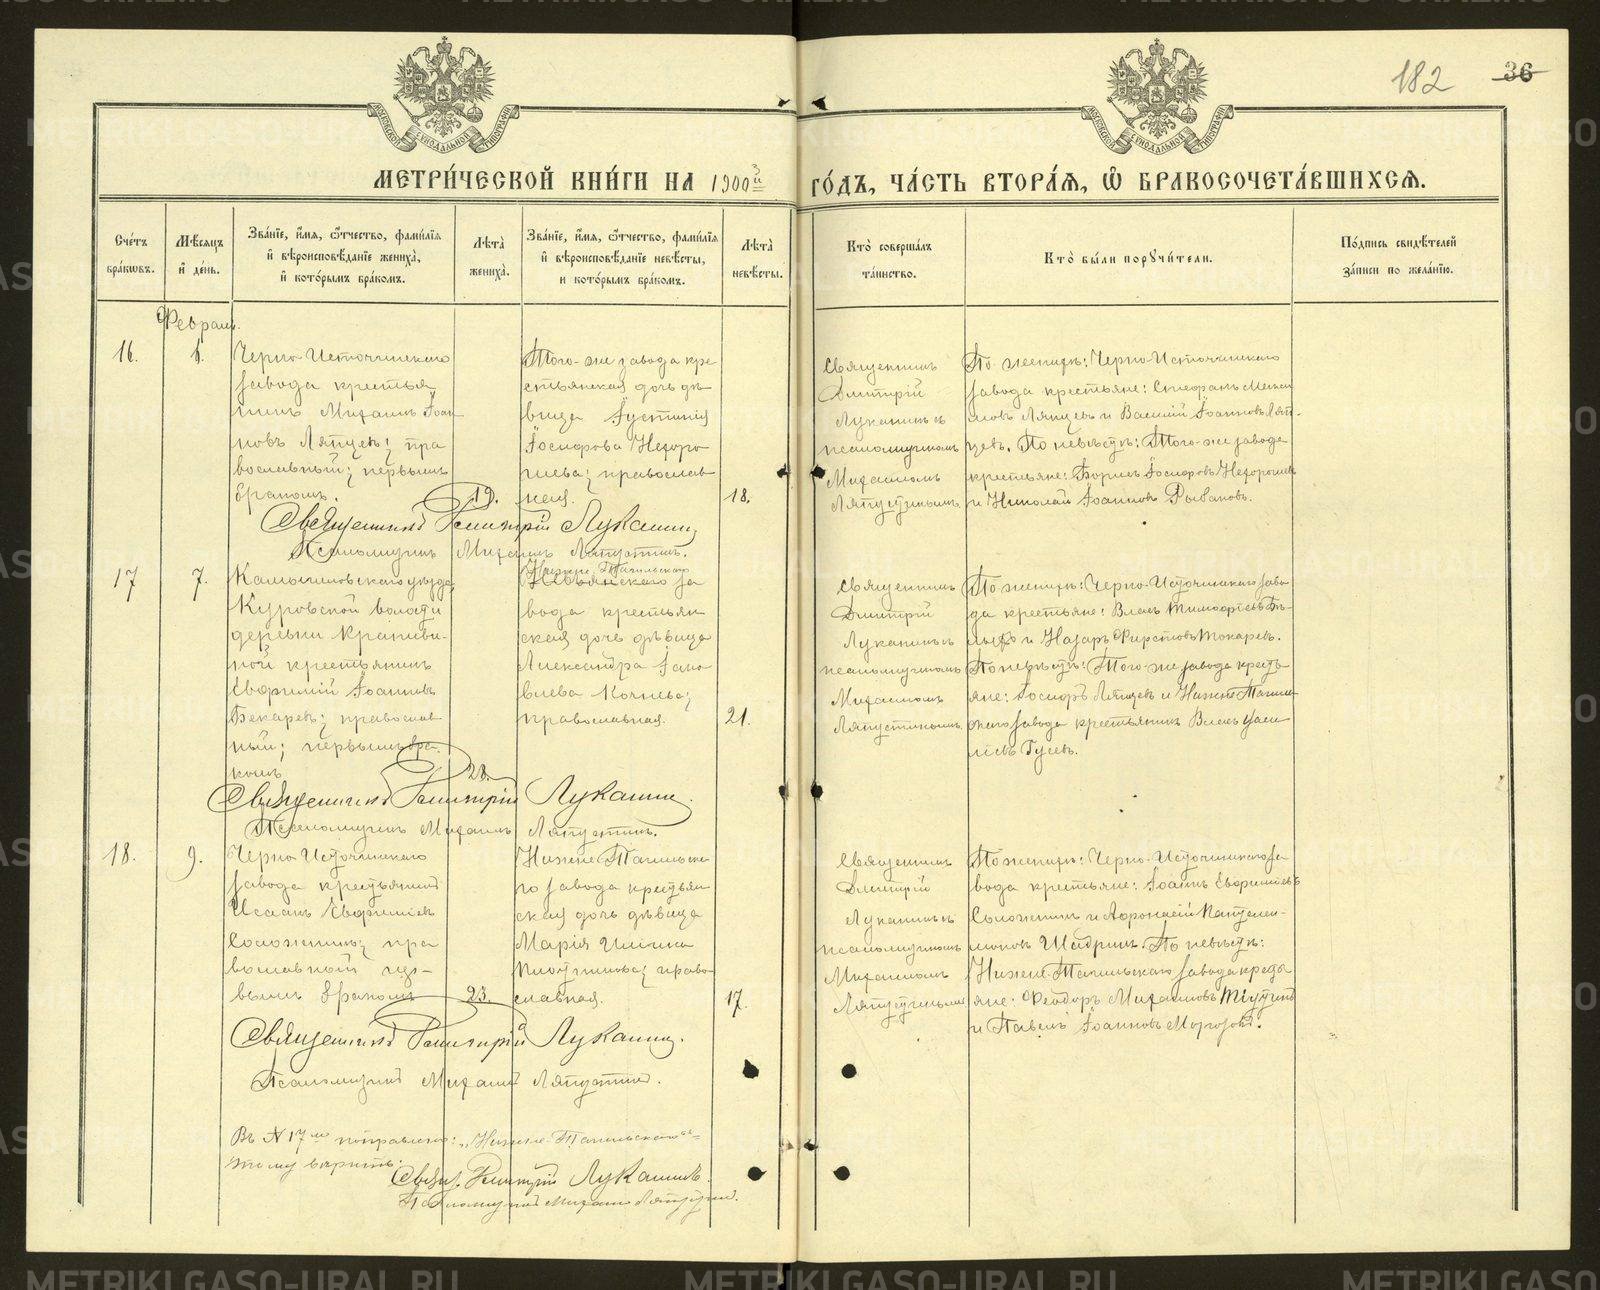 182 36
МЕТРИ́ЧЕСКОЙ КНИ́ГИ НА 1900й ГО́ДЪ, ЧА́СТЬ ВТОРА́Я, Ѿ БРАКОСОЧЕТА́ВШИХСЯ.
Сче́тъ бра́кωвъ.
Мѣ́сяцъ и́ де́нь.
Зва́нїе, и́мя, ѻ́тчество, фами́лїя и҆ вѣроисповѣ́данїе жениха̀, и҆ кото́рымъ бра́комъ.
Лѣта̀ жениха̀.
Зва́нїе, и́мя, ѻ́тчество, фами́лїя и҆ вѣроисповѣ́данїе невѣ́сты, и кото́рымъ бра́комъ.
Лѣта̀ невѣ́сты.
Кто̀ соверша́лъ та́инство.
Кто̀ бы́ли порꙋчи́тели.
По́дпись свидѣ́телей за́писи по жела́нїю.
Февраль.
16.
6.
Черно-Источинскаго
завода крестья
нинъ Михаилъ Іоан
новъ Ляпцевъ; пра
вославный; первымъ
бракомъ.
19.
Того-же завода кре
стьянская дочь дѣ
вица Іустинія
Іосифова Нехоро
шева; православ
ная.
18.
Священникъ
Димитрій
Луканинъ съ
псаломщикомъ
Михаиломъ
Ляпустинымъ.
По женихѣ: Черно-Источинскаго
завода крестьяне: Стефанъ
Ляпцевъ и Василій Іоанновъ Ляп-
цевъ. По невѣстѣ: Того-же завода
крестьяне: Борисъ Іосифовъ Нехорошевъ
и Николай Іоанновъ Рыбаковъ.
Священникъ Димитрій Луканинъ
Псаломщикъ Михаилъ Ляпустинъ.
17
7.
Камышловскаго уѣзда,
Куровской волости
деревни Крапиви-
ной крестьянинъ
Евфимій Іоанновъ
Бекаревъ; православ
ный; первымъ бра-
комъ
28.
Нижне-Тагильскаго
Невьянскаго за
вода крестьян
ская дочь дѣвица
Александра Іако
влева Кочнева;
православная.
21.
Священникъ
Димитрій
Луканинъ съ
псаломщикомъ
Михаиломъ
Ляпустинымъ
По женихѣ: Черно-Источинскаго заво
да крестьяне: Власъ Тимофѣевъ Бѣ-
лыхъ и Назаръ Фирстовъ Токаревъ.
По невѣстѣ: Того-же завода кресть
яне: Іосифъ Ляпцевъ и Нижне-Тагиль
скаго завода крестьянинъ Власъ
Гусевъ.
Священникъ Димитрій Луканинъ
Псаломщикъ Михаилъ Ляпустинъ.
18.
9.
Черно-Источинскаго
завода крестьянинъ
Исаакъ Евфиміевъ
Соложнинъ; пра
вославный; пер-
вымъ бракомъ
23.
Нижне-Тагильска
го завода крестьян
ская дочь дѣвица
Марія Ильина
Плотникова; право-
славная.
17.
Священникъ
Димитрій
Луканинъ съ
псаломщикомъ
Михаиломъ
Ляпустинымъ
По женихѣ: Черно-Источинскаго за
вода крестьяне: Іоаннъ Евфиміевъ
Соложнинъ и Афонасій Пантелей-
моновъ Шадринъ. По невѣстѣ:
Нижне-Тагильскаго завода кресть
яне: Феодоръ Михаиловъ
и Павелъ Іоанновъ Морозовъ.
Священникъ Димитрій Луканинъ.
Псаломщикъ Михаилъ Ляпустинъ.
Въ № 17мъ поправлено: „Нижне-Тагильскаго"=
тому вѣрить.
Свящ. Димитрій Луканинъ.
Псаломщикъ Михаилъ Ляпустинъ.
METRIKI.GASO-URAL.RU